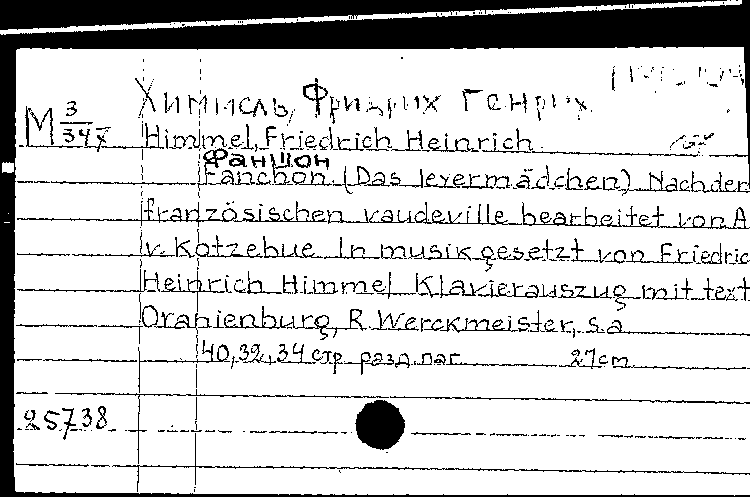 Химмель, Фридрих Генрих
M 3/347
Himmel, Friedrich Heinrich
Фаншон
Fanchon. (Das leyermädchen) Nach der
französischen vaudeville bearbeitet von A
v. Kotzebue In musik gesetzt von Friedric
Heinrich Himmel Klavierauszug mit text
Oranienburg, R Werckmeister, s.a
40, 32, 34 стр разд. паг. 27cm
25738